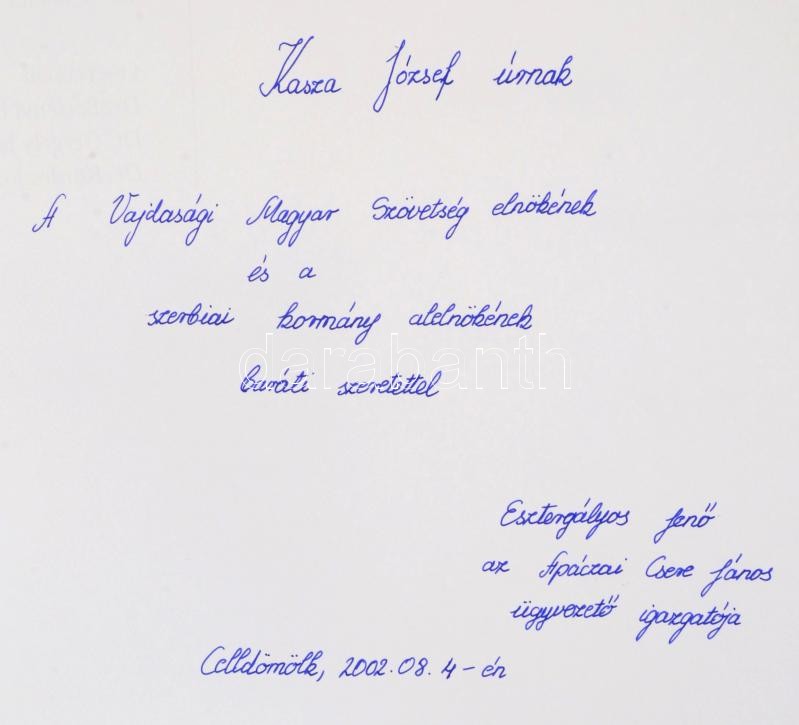 Kasza József úrnak
A Vajdasági Magyar Szövetség elnökének
és a
szerbiai kormány alelnökének
darabanth
baráti szeretettel
Esztergályos Jenő
az Apáczai Csere János
ügyvezető igazgatója
Celldömölk, 2002.08.4-én